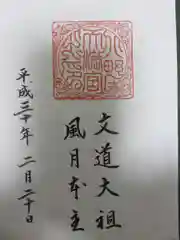 文道大祖
風月本主
平成三十年 二月二十日